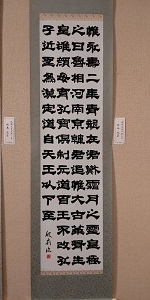 惟永壽二年青龍在涒歎霜月之靈皇極
之日魯相河南京韓君追惟大古華胥生
皇雄顏母育孔寶俱制元道百王不改孔
子近聖為漢定道自天王以下至